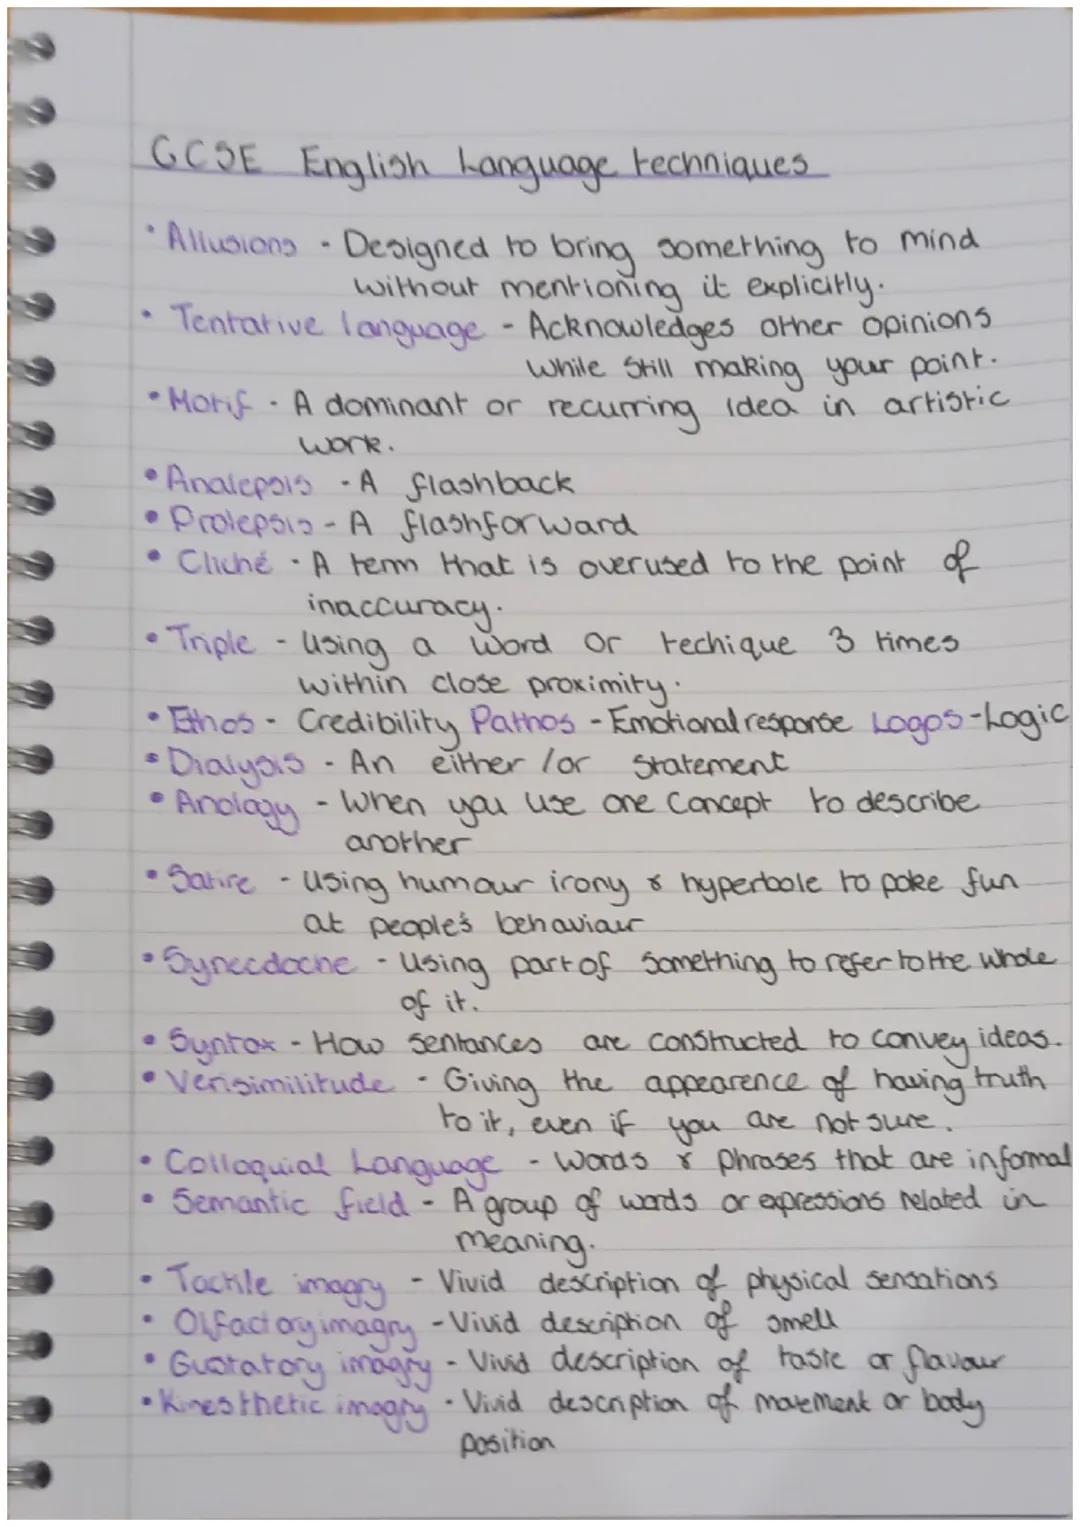 GCSE English Language techniques
• Allusions - Designed to bring something to mind
without mentioning it explicitly.
• Tentative language - Acknowledges other opinions
while still making your point.
• Motif - A dominant or recurring idea in artistic
work.
• Analepsis - A flashback
• Prolepsis - A flashforward
• Cliché - A term that is overused to the point of
inaccuracy.
• Triple - Using a word or techique 3 times
within close proximity.
• Ethos - Credibility Pathos - Emotional response Logos - Logic
• Dialysis - An either/or statement
• Anology - When you use one concept to describe
another
• Satire - Using humour irony & hyperbole to poke fun
at people's behaviour
• Synecdoche - Using part of something to refer to the whole
of it.
• Syntax - How sentances are constructed to convey ideas.
• Verisimilitude - Giving the appearence of having truth
to it, even if you are not sure.
• Colloquial Language - Words & phrases that are informal
• Semantic field - A group of words or expressions related in
meaning.
• Tactile imagry - Vivid description of physical sensations
• Olfactory imagry - Vivid description of smell
• Gustatory imagry - Vivid description of taste or flavour
• Kinesthetic imagry - Vivid description of movement or body
position